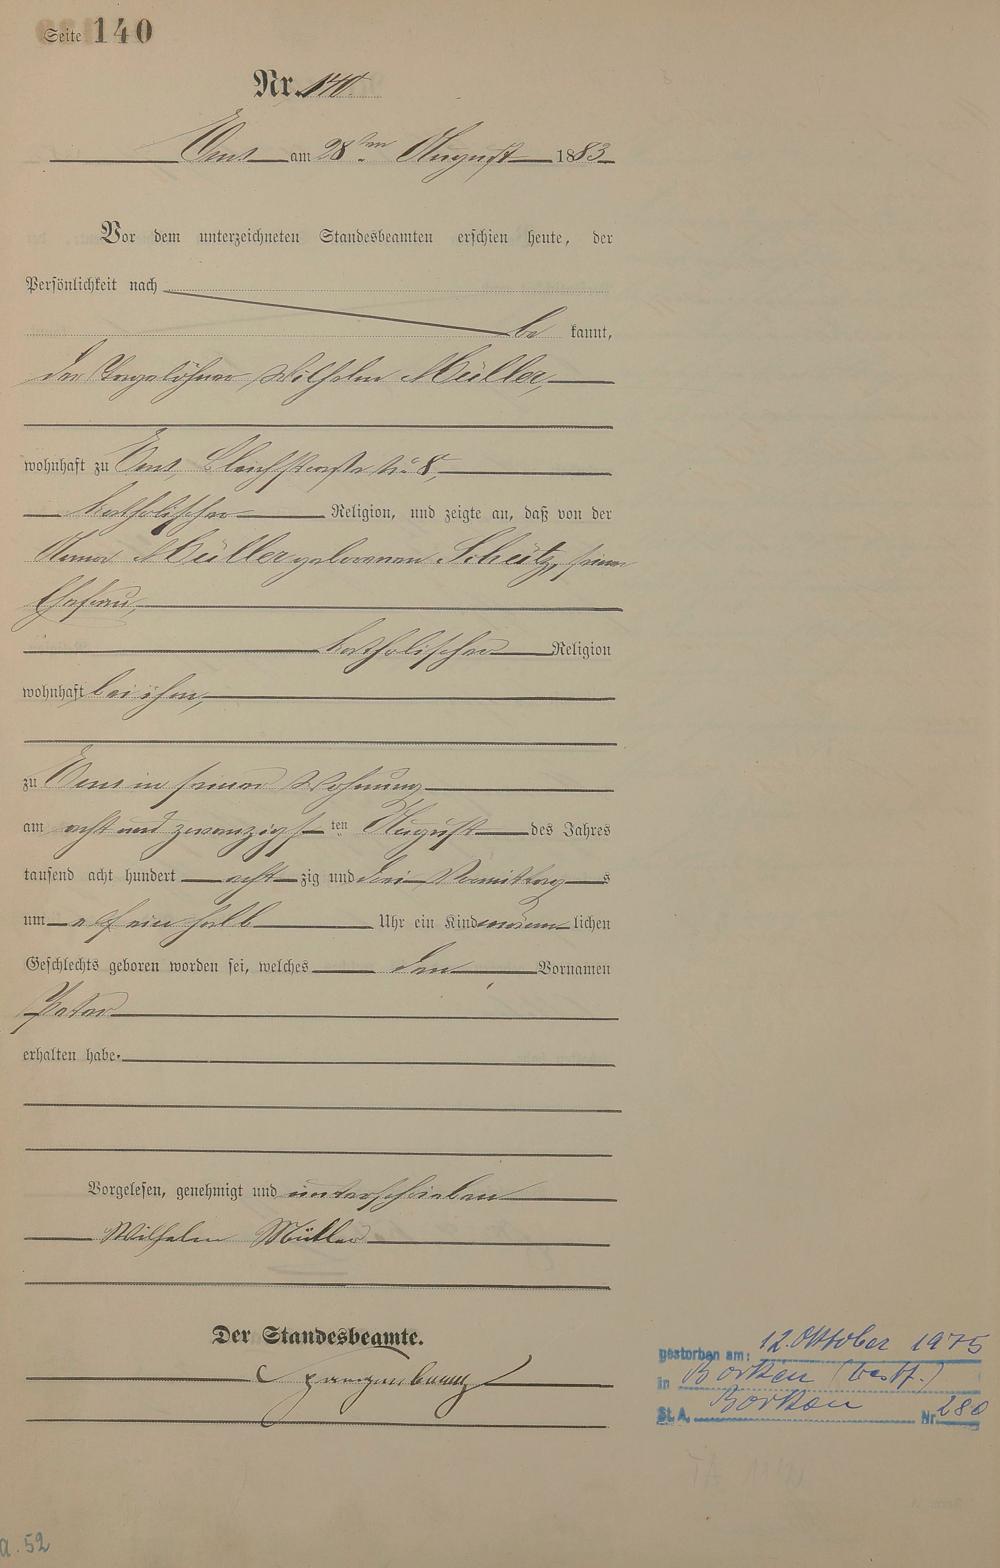 Seite 140
Nr. 140.
Ems am 28ten August 1883
Vor dem unterzeichneten Standesbeamten erschien heute, der
Persönlichkeit nach
be kannt,
der Tagelöhner Wilhelm Müller,
wohnhaft zu Ems, Bleichstraße No 8,
katholischer Religion, und zeigte an, daß von der
Müller geborenen Schütz, seiner
Ehefrau,
katholischer Religion
wohnhaft bei ihm,
zu Ems in seiner Wohnung
am acht und zwanzigsten August des Jahres
tausend acht hundert acht zig und drei Vormittags
um elf ein halb Uhr ein Kind männlichen
Geschlechts geboren worden sei, welches den Vornamen
Peter
erhalten habe.
Vorgelesen, genehmigt und unterschrieben
Wilhelm Müller
Der Standesbeamte.
gestorben am: 12. Oktober 1975
in Borken (Westf.)
St. A. Borken Nr. 280
a. 52